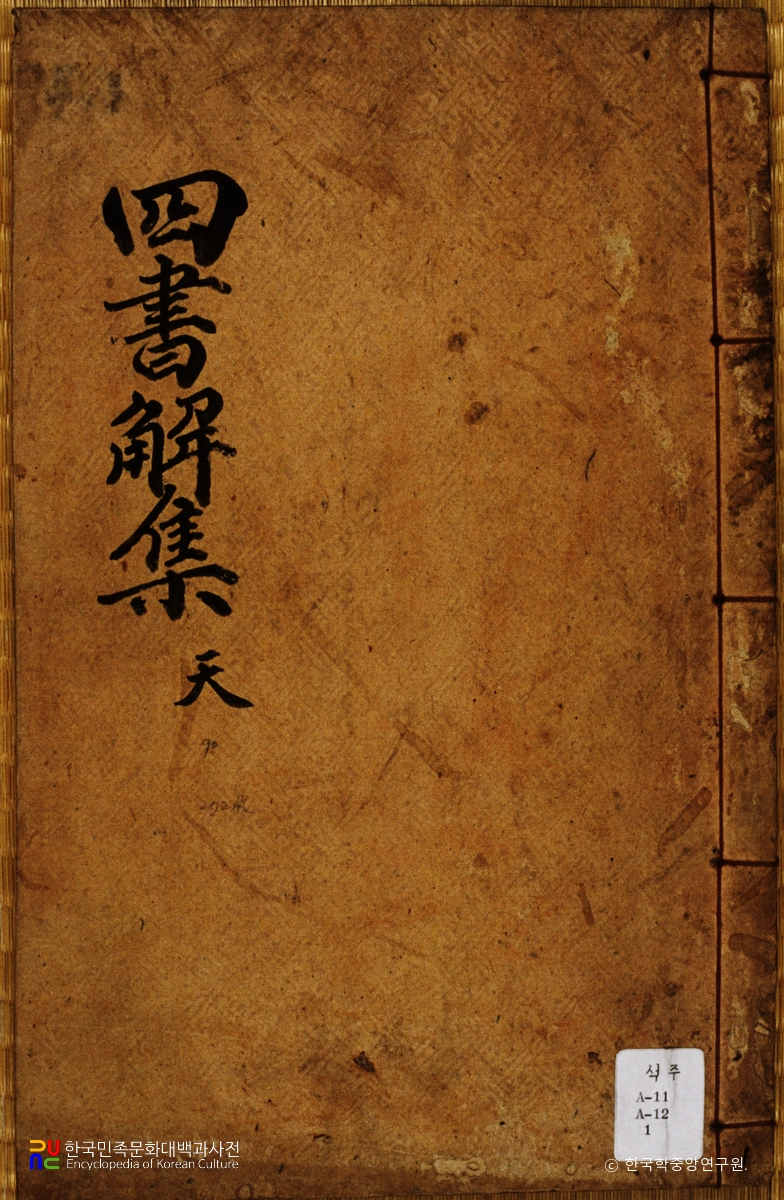 四書解集 天
석주
A-11
A-12
1
한국민족문화대백과사전
Encyclopedia of Korean Culture
ⓒ 한국학중앙연구원.